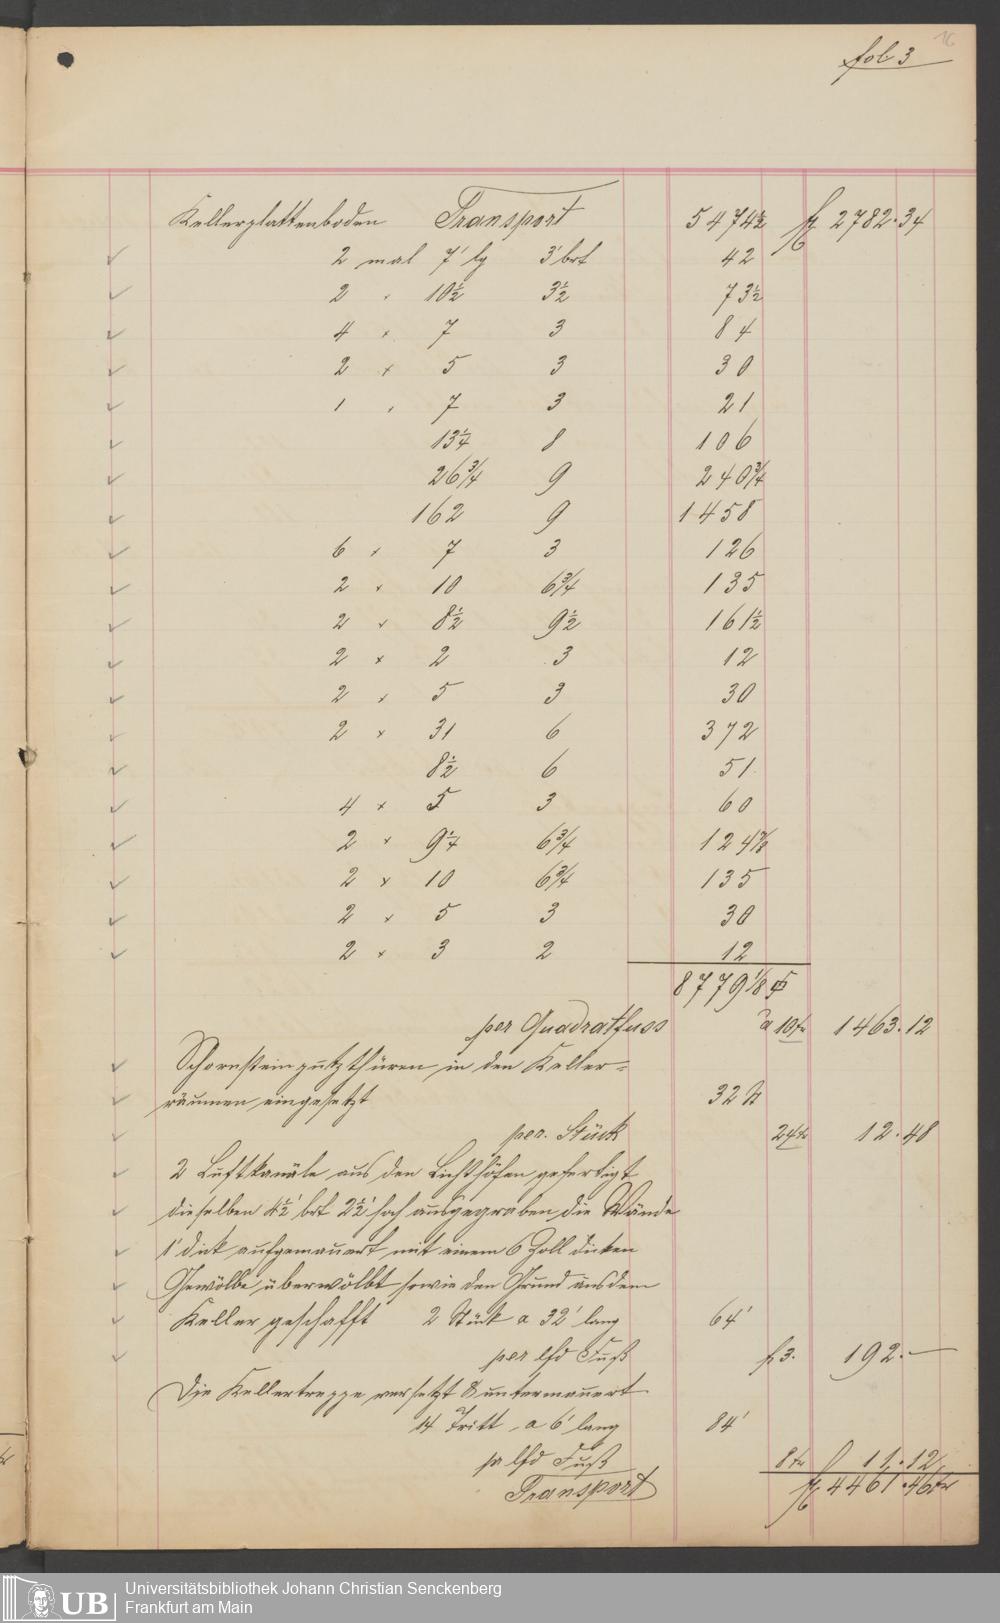 16
fol 3
Kellerplattenboden Transport 5474½ fl 2782.34
2 mal 7' lg 3' brt 42
2 " 10½ 3½ 73½
4 × 7 3 84
2 × 5 3 30
1 " 7 3 21
13¼ 8 106
26¾ 9 240¾
162 9 1458
6 × 7 3 126
2 × 10 6¾ 135
2 × 8½ 9½ 161½
2 × 2 3 12
2 × 5 3 30
2 × 31 6 372
8½ 6 51
4 × 5 3 60
2 × 9¼ 6¾ 124⅞
2 × 10 6¾ 135
2 × 5 3 30
2 × 3 2 12
8779⅛
per Quadratfuss à 10 kr 1463.12
Schornsteinputzthüren in den Keller=
räumen eingesetzt 32 St
per. Stück 24 kr 12.48
2 Luftkanäle aus den Lichthöfen gefertigt
dieselben 4½' brt 2½' hoch ausgegraben die Wände
1' dick aufgemauert mit einem 6 Zoll dicken
Gewölbe überwölbt sowie den Grund aus dem
Keller geschafft 2 Stück a 32' lang 64'
per lfd Fuß fl 3. 192.—
Die Kellertreppe versetzt & untermauert
14 Tritt a 6' lang 84'
pr lfd Fuß 8 kr fl 11.12
Transport fl 4461.46 kr
UB
Universitätsbibliothek Johann Christian Senckenberg
Frankfurt am Main